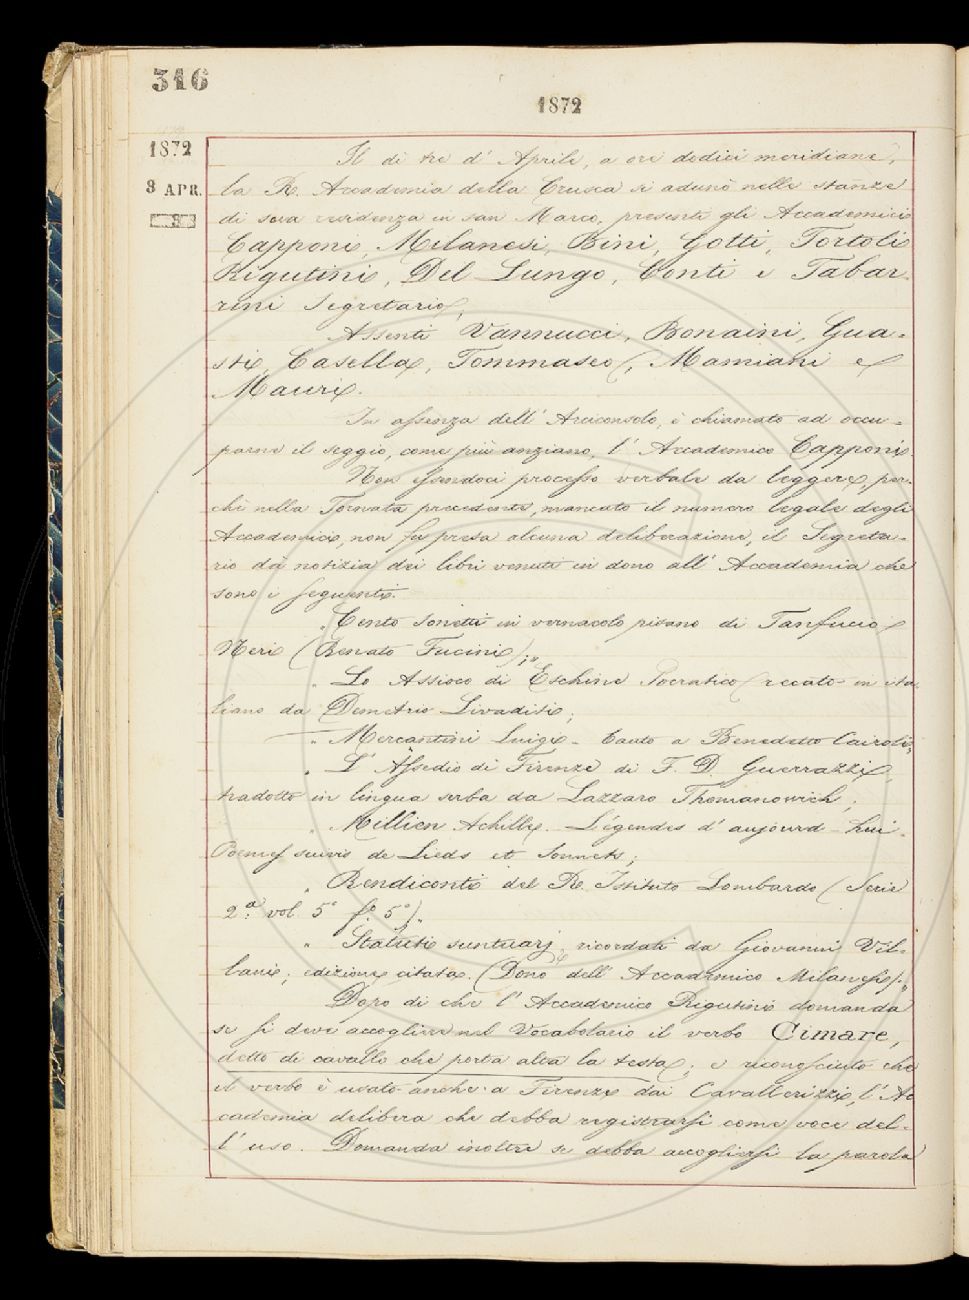 316
1872
1872
3 APR.
3
Il dì tre d' Aprile, a ore dodici meridiane,
la R. Accademia della Crusca si adunò nelle stanze
di sua residenza in san Marco, presenti gli Accademici
Capponi, Milanesi, Bini, Gotti, Tortoli
Rigutini, Del Lungo, Conti e Tabar-
rini Segretario;
Assenti Vannucci, Bonaini, Gua-
sti, Casella, Tommaseo, Mamiani e
Mauri.
In assenza dell' Arciconsolo, è chiamato ad occu-
parne il seggio, come più anziano, l' Accademico Capponi.
Non essendoci processo verbale da leggere, per-
chè nella Tornata precedente, mancato il numero legale degli
Accademici, non fu presa alcuna deliberazione, il Segreta-
rio dà notizia dei libri venuti in dono all' Accademia che
sono i seguenti.
„ Cento Sonetti in vernacolo pisano di Tanfucio
Neri (Renato Fucini);„
„ Lo Assioco di Eschine Socratico (recato in ita-
liano da Demetrio Livaditi;
„ Mercantini Luigi - Canto a Benedetto Cairoli;
„ L' Assedio di Firenze di F. D. Guerrazzi,
tradotto in lingua serba da Lazzaro Thomanowich;
„ Millien Achille. Légendes d' aujourd-hui.
Poemes suivis de Lieds et Sonnets;
„ Rendiconti del R. Istituto Lombardo (Serie
2ª. vol. 5° f.° 5°).
„ Statuti suntuarj, ricordati da Giovanni Vil-
lani; edizione citata. (Dono dell' Accademico Milanesi);„
Dopo di che l' Accademico Rigutini domanda
se si deve accogliere nel Vocabolario il verbo Cimare,
detto di cavallo che porta alta la testa; e riconosciuto che
il verbo è usato anche a Firenze dai Cavallerizzi, l' Ac
cademia delibera che debba registrarsi come voce del-
l' uso. Domanda inoltre se debba accogliersi la parola